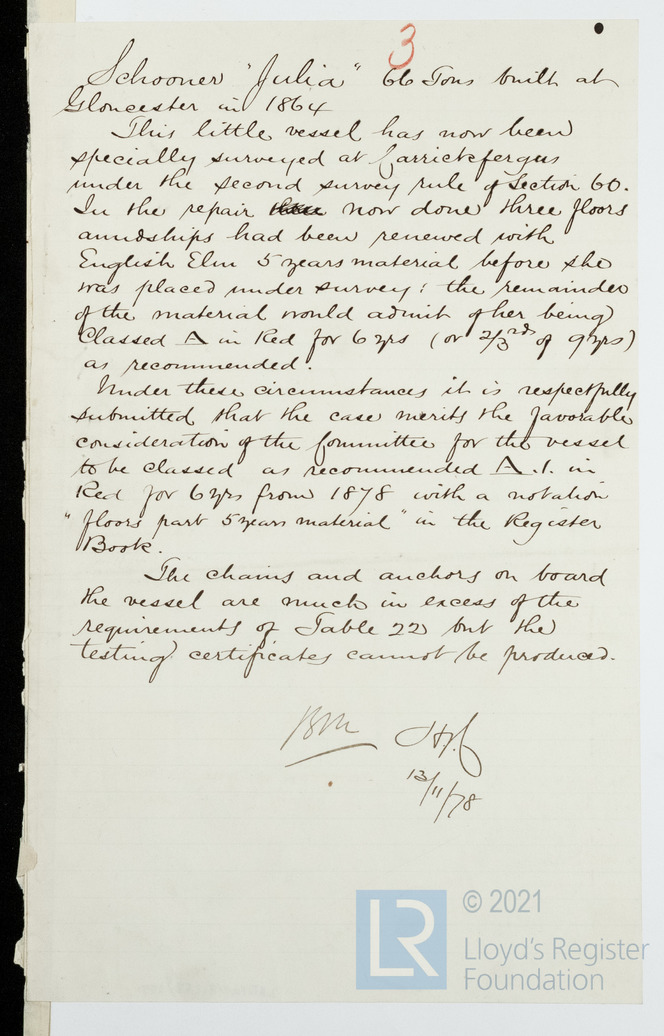 3
Schooner "Julia" 66 Tons built at
Gloucester in 1864
This little vessel has now been
specially surveyed at Carrickfergus
under the second survey rule of Section 60.
In the repair now done three floors
amidships had been renewed with
English Elm 5 years material before she
was placed under survey: the remainder
of the material would admit of her being
Classed A in Red for 6 yrs (or 2/3rds of 9 yrs)
as recommended.
Under these circumstances it is respectfully
submitted that the case merits the favorable
consideration of the Committee for the vessel
to be classed as recommended A.1. in
Red for 6 yrs from 1878 with a notation
"floors part 5 years material" in the Register
Book.
The chains and anchors on board
the vessel are much in excess of the
requirements of Table 22 but the
testing certificates cannot be produced.
BM
13/11/78
LR © 2021
Lloyd's Register
Foundation